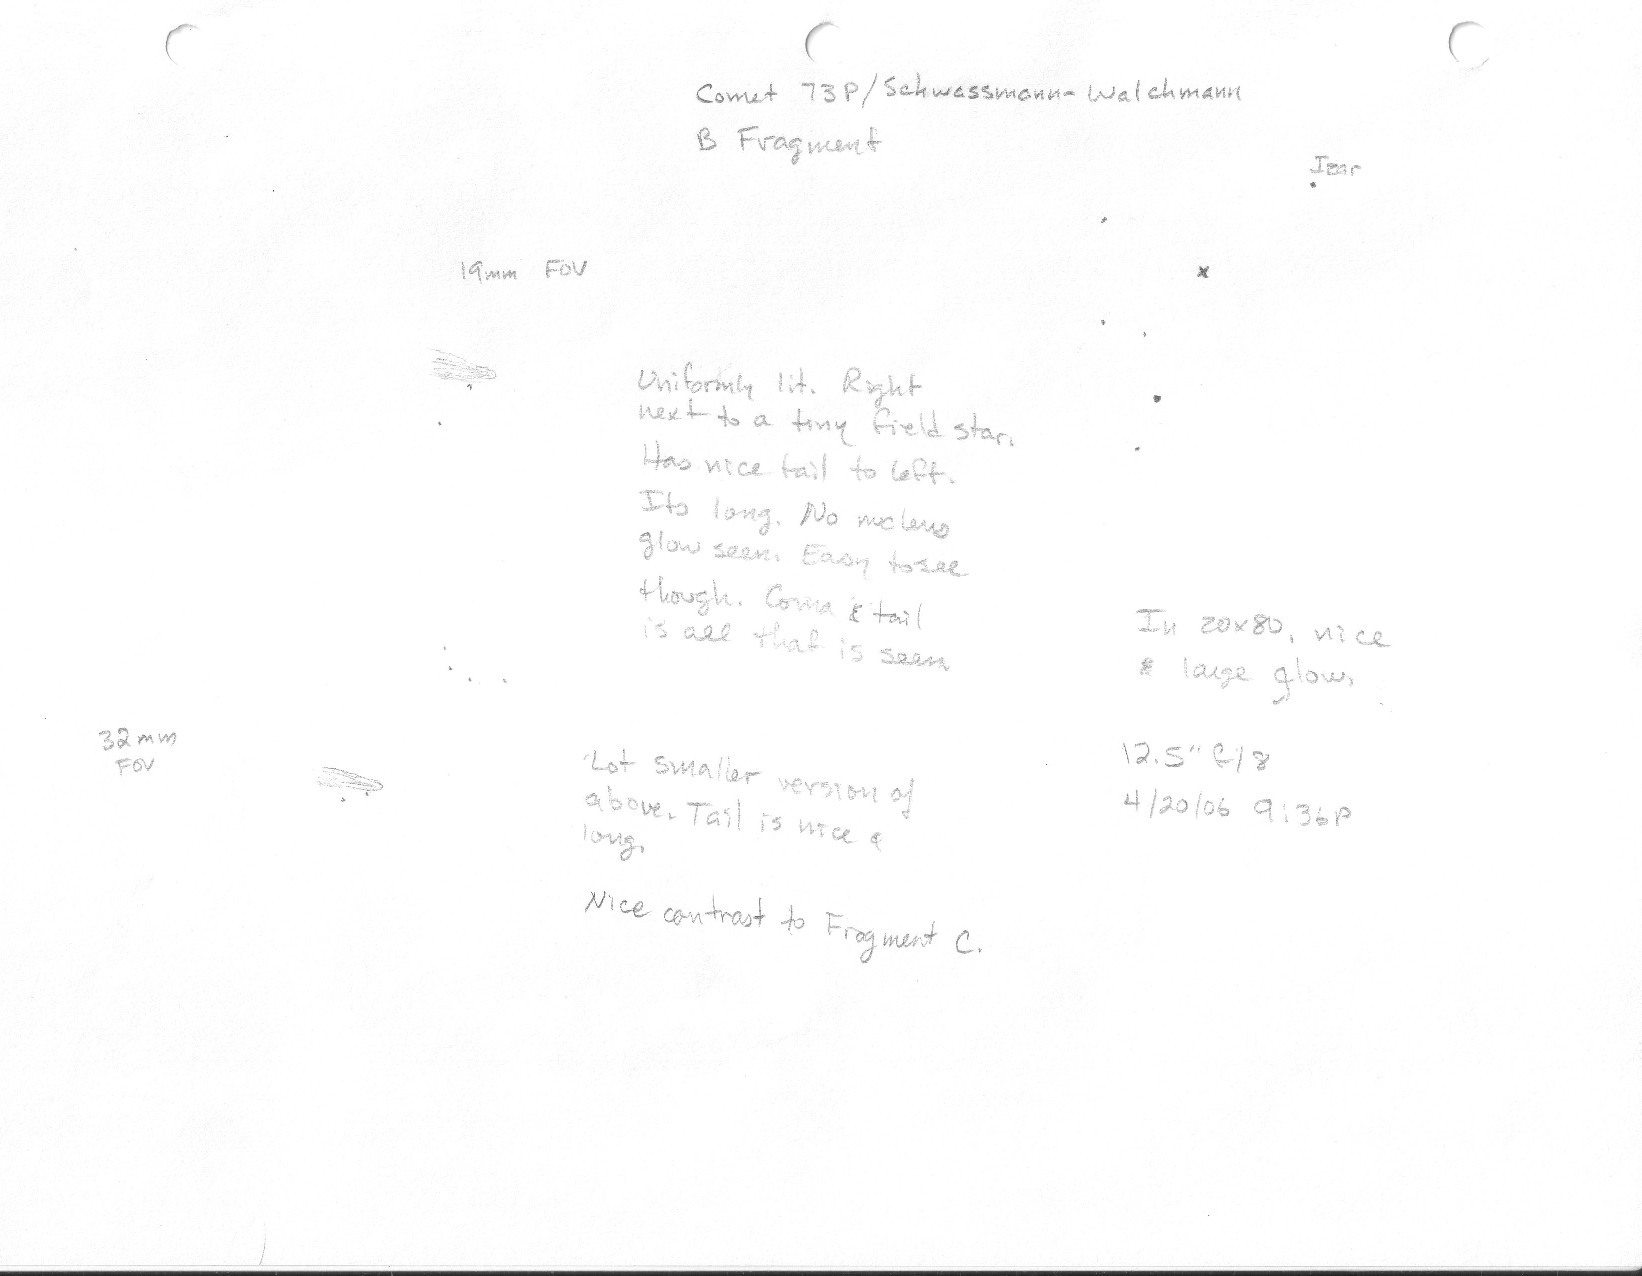 Comet 73P/Schwassmann-Walchmann
B Fragment
Izar
19mm FOV
Uniformly lit. Right
next to a tiny field star.
Has nice tail to left.
Its long. No nucleus
glow seen. Easy to see
though. Coma & tail
is all that is seen
In 20x80, nice
& large glow.
32mm
FOV
Lot smaller version of
above. Tail is nice &
long.
12.5" f/8
4/20/06 9:36P
Nice contrast to Fragment C.